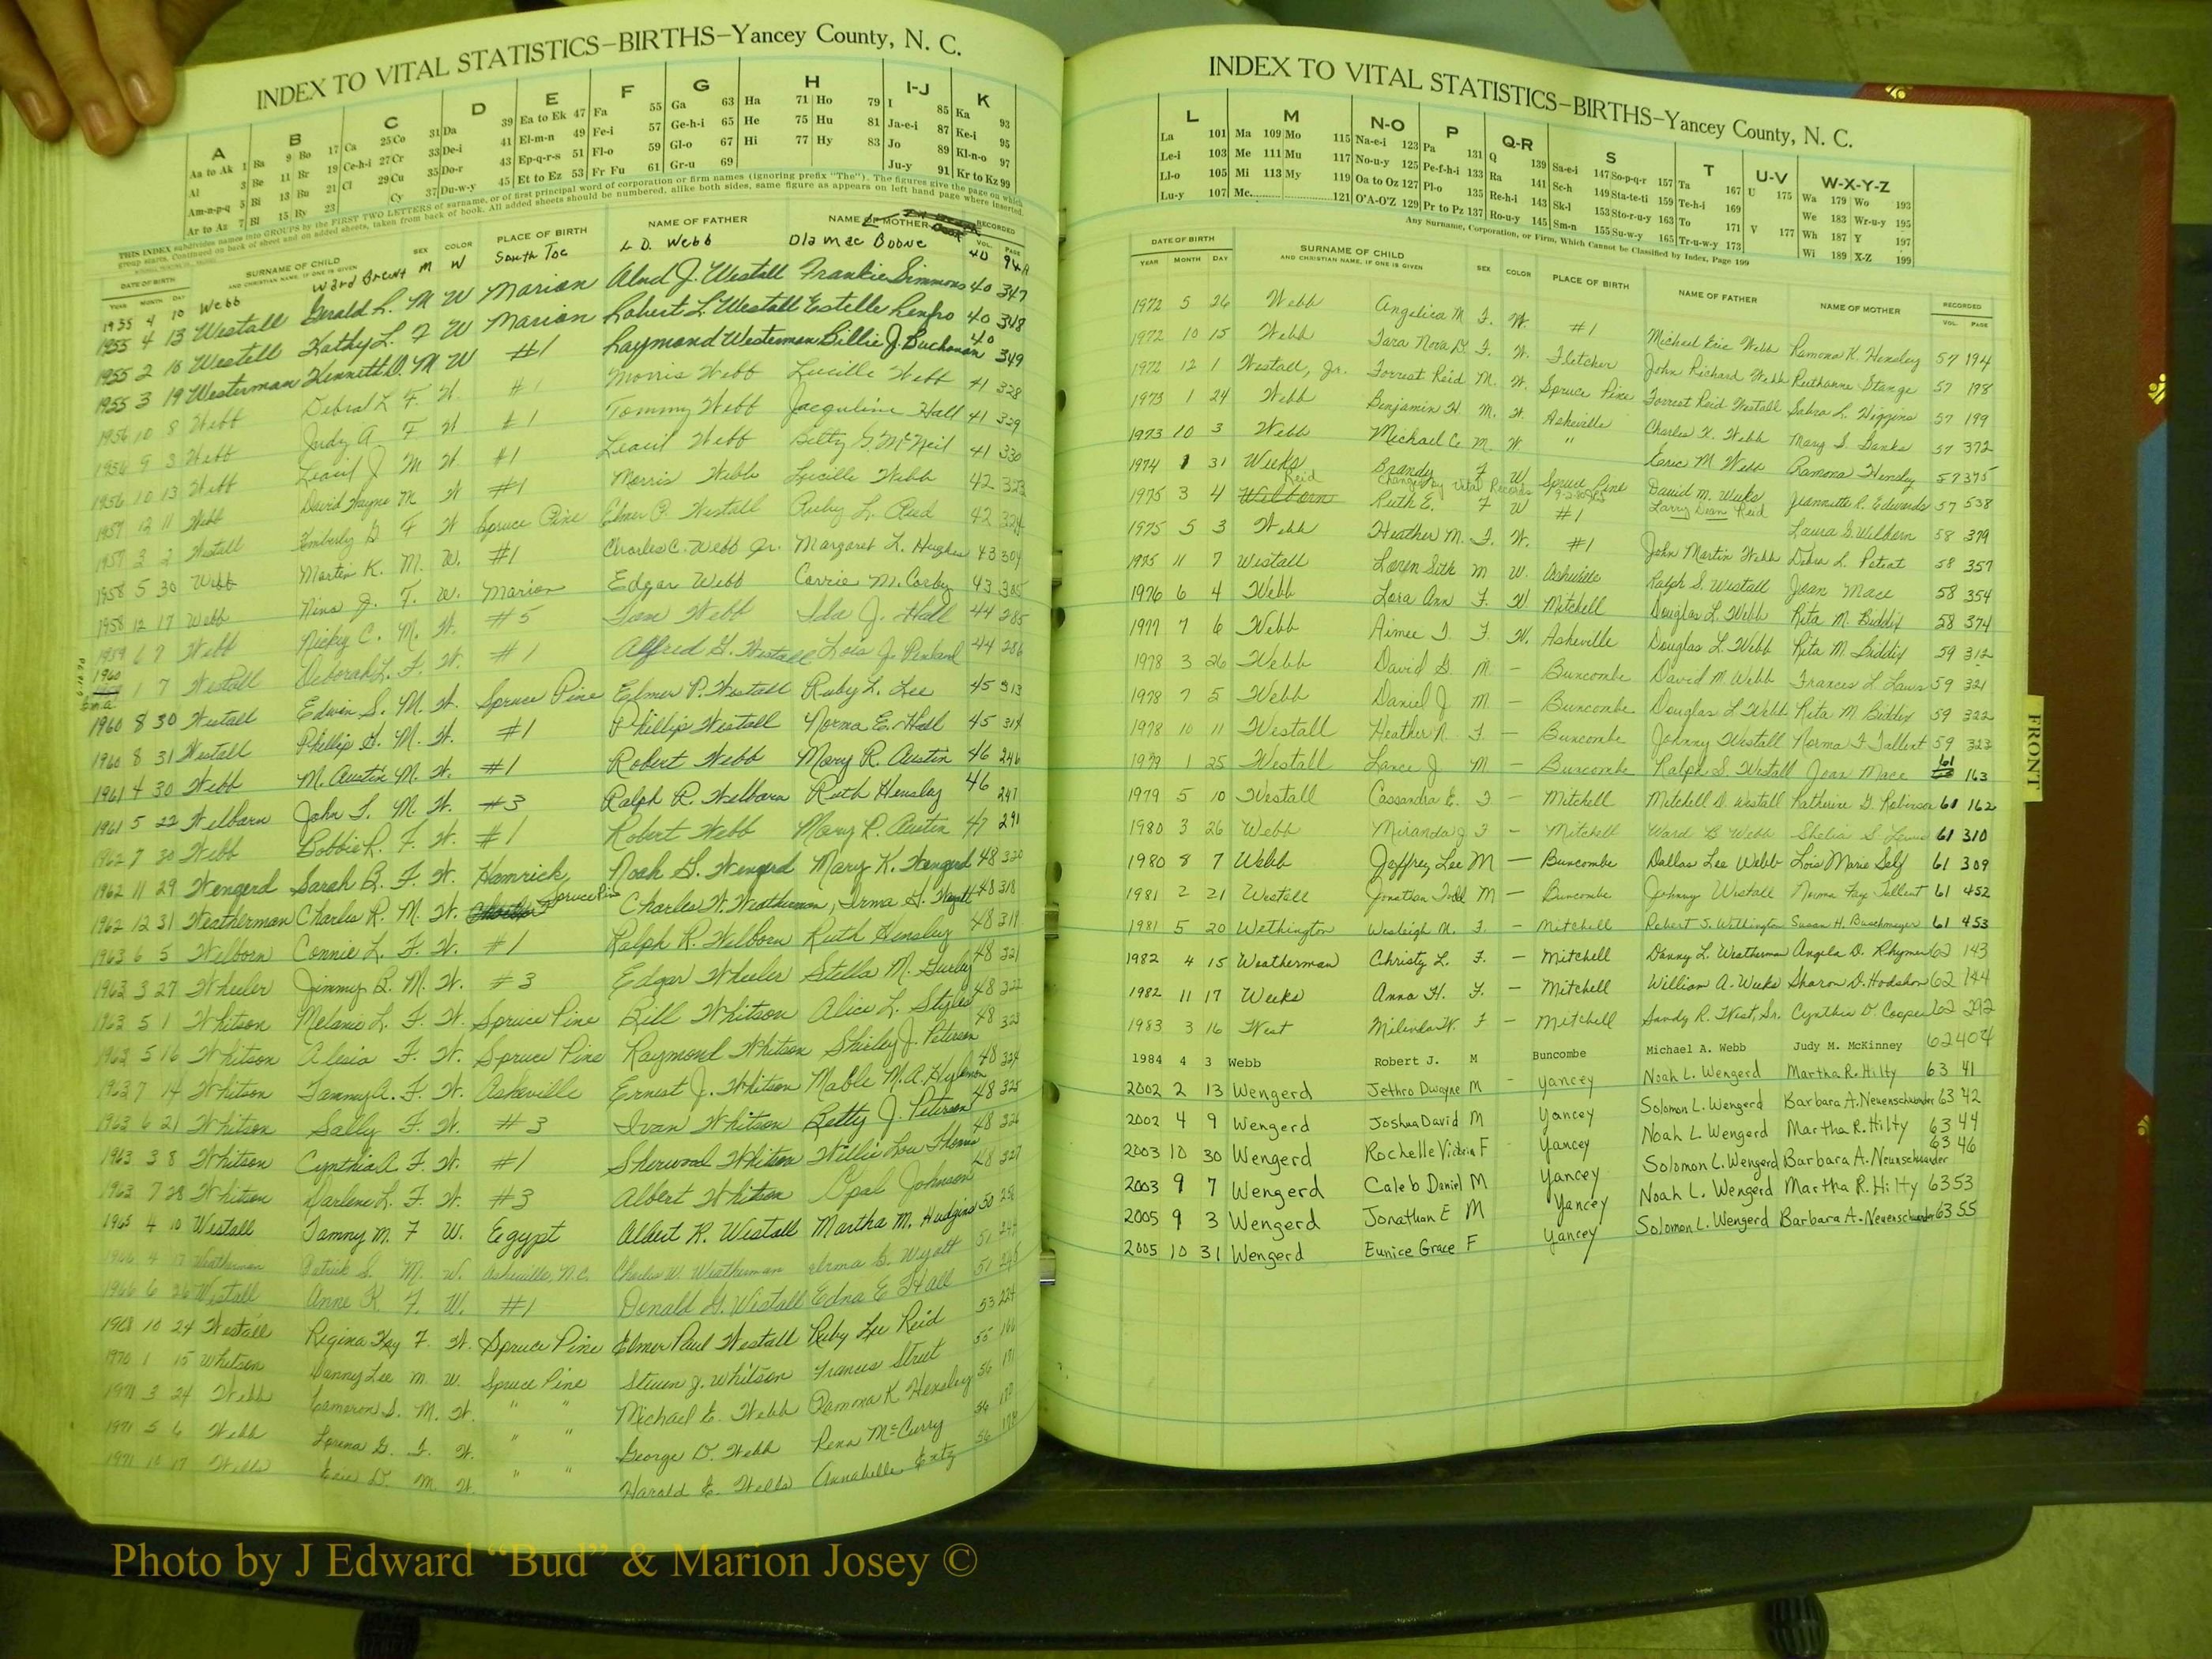 INDEX TO VITAL STATISTICS–BIRTHS–Yancey County, N. C.
A B C D E F G H I-J K
Aa to Ak 1 Ba 9 Bo 17 Ca 25 Co 31 Da 39 Ea to Ek 47 Fa 55 Ga 63 Ha 71 Ho 79 I 85 Ka 93
Al 3 Be 11 Br 19 Ce-h-i 27 Cr 33 De-i 41 El-m-n 49 Fe-i 57 Ge-h-i 65 He 75 Hu 81 Ja-e-i 87 Ke-i 95
Am-n-p-q 5 Bi 13 Bu 21 Cl 29 Cu 35 Do-r 43 Ep-q-r-s 51 Fl-o 59 Gl-o 67 Hi 77 Hy 83 Jo 89 Kl-n-o 97
Ar to Az 7 Bl 15 By 23 Cy 37 Du-w-y 45 Et to Ez 53 Fr Fu 61 Gr-u 69 Ju-y 91 Kr to Kz 99
THIS INDEX subdivides names into GROUPS by the FIRST TWO LETTERS of surname, or of first principal word of corporation or firm names (ignoring prefix "The"). The figures give the page on which
group starts. Continued on back of sheet and on added sheets, taken from back of book. All added sheets should be numbered, alike both sides, same figure as appears on left hand page where inserted.
DATE OF BIRTH SURNAME OF CHILD SEX COLOR PLACE OF BIRTH NAME OF FATHER NAME OF MOTHER RECORDED
YEAR MONTH DAY AND CHRISTIAN NAME, IF ONE IS GIVEN VOL. PAGE
1955 4 10 Webb Ward Brent M W South Toe L D. Webb Ola Mae Boone 40 94A
1955 4 13 Westall Gerald L. M W Marion Alud J. Westall Frankie Simmons 40 347
1955 2 18 Westall Kathy L. F W Marion Robert L. Westall Estelle Renfro 40 348
1955 3 19 Westerman Kenneth D. M W #1 Raymond Westerman Billie J. Buchanan 40 349
1956 10 8 Webb Debral L F. W. #1 Morris Webb Lucille Webb 41 328
1956 9 3 Webb Judy A. F W #1 Tommy Webb Jacquline Hall 41 329
1956 10 13 Webb J. M W. #1 Webb Betty G. McNeil 41 330
1957 12 11 Webb David Wayne M W #1 Morris Webb Lucille Webb 42 323
1957 3 2 Westall Kimberly D F W Spruce Pine Elmer P. Westall Ruby L. Reid 42 324
1958 5 30 Webb Martin K. M. W. #1 Charles C. Webb Jr. Margaret L. Hughes 43 304
1958 12 17 Webb Nina J. F. W. Marion Edgar Webb Carrie M. Corby 43 305
1959 6 7 Webb Nicky C. M. W. #5 Webb Ida J. Hall 44 285
1960 1 7 Westall Deborah L. F. W. #1 Alfred G. Westall Lois J. Penland 44 286
1960 8 30 Westall Edwin S. M. W. Spruce Pine Elmer P. Westall Ruby L. Lee 45 313
1960 8 31 Westall Phillip G. M. W. #1 Phillip Westall Norma E. Hall 45 314
1961 4 30 Webb M. Austin M. W. #1 Robert Webb Mary R. Austin 46 246
1961 5 22 Welborn John T. M. W. #3 Ralph R. Welborn Ruth Hensley 46 247
1962 7 30 Webb Bobbie R. F. W. #1 Robert Webb Mary R. Austin 47 291
1962 11 29 Wengerd Sarah B. F. W. Hamrick Noah G. Wengerd Mary K. Wengerd 48 320
1962 12 31 Weatherman Charles R. M. W. Spruce Pine Charles W. Weatherman, Irma G. Wyatt 48 318
1963 6 5 Welborn Connie L. F. W. #1 Ralph R. Welborn Ruth Hensley 48 319
1963 3 27 Wheeler Jimmy B. M. W. #3 Edgar Wheeler Stella M. Gurley 48 321
1963 5 1 Whitson Melanie L. F. W. Spruce Pine Bill Whitson Alice L. Styles 48 322
1963 5 16 Whitson Alesia F. W. Spruce Pine Raymond Whitson Shirley J. Peterson 48 323
1963 7 14 Whitson Tammy A. F. W. Asheville Ernest J. Whitson Mable M. A. 48 324
1963 6 21 Whitson Sally F. W. #3 Ivan Whitson Betty J. Peterson 48 325
1963 3 8 Whitson Cynthia A F. W. #1 Sherwood Whitson Willie Lou Thomas 48 326
1963 7 28 Whitson Darlene L. F. W. #3 Albert Whitson Opal Johnson 48 327
1965 4 10 Westall Tammy M. F W. Egypt Albert R. Westall Martha M. Hudgins 50 256
1966 4 17 Weatherman Patrick S. M. W. Asheville, N.C. Charles W. Weatherman Irma G. Wyatt 51 244
1966 6 26 Westall Anne K. F. W. #1 Donald G. Westall Edna E Hall 51 245
1968 10 24 Westall Regina Kay F. W. Spruce Pine Elmer Paul Westall Ruby Lee Reid 53 224
1970 1 15 Whitson Danny Lee M. W. Spruce Pine Steven J. Whitson Frances Street 55 166
1971 3 24 Webb Cameron S. M. W. " " Michael E. Webb Ramona K Hensley 56 181
1971 5 6 Webb Lorena G. F. W. " " George D. Webb Rena McCurry 56
1971 10 17 Wells Eric D. M. W. " " Harold E. Wells Annabelle 56
INDEX TO VITAL STATISTICS–BIRTHS–Yancey County, N. C.
L M N-O P Q-R S T U-V W-X-Y-Z
La 101 Ma 109 Mo 115 Na-e-i 123 Pa 131 Q 139 Sa-e-i 147 So-p-q-r 157 Ta 167 U 175 Wa 179 Wo 193
Le-i 103 Me 111 Mu 117 No-u-y 125 Pe-f-h-i 133 Ra 141 Sc-h 149 Sta-te-ti 159 Te-h-i 169 We 183 Wr-u-y 195
Ll-o 105 Mi 113 My 119 Oa to Oz 127 Pl-o 135 Re-h-i 143 Sk-l 153 Sto-r-u-y 163 To 171 V 177 Wh 187 Y 197
Lu-y 107 Mc 121 O'A-O'Z 129 Pr to Pz 137 Ro-u-y 145 Sm-n 155 Su-w-y 165 Tr-u-w-y 173 Wi 189 X-Z 199
Any Surname, Corporation, or Firm, Which Cannot be Classified by Index, Page 199
DATE OF BIRTH SURNAME OF CHILD SEX COLOR PLACE OF BIRTH NAME OF FATHER NAME OF MOTHER RECORDED
YEAR MONTH DAY AND CHRISTIAN NAME, IF ONE IS GIVEN VOL. PAGE
1972 5 26 Webb Angelica M F. W. #1 Michael Eric Webb Ramona K. Hensley 57 194
1972 10 15 Webb Tara Nova D. F. W. Fletcher John Richard Webb Ruthanne Stange 57 198
1972 12 1 Westall, Jr. Forrest Reid M. W. Spruce Pine Forrest Reid Westall Sabra L. Higgins 57 199
1973 1 24 Webb Benjamin H. M. W. Asheville Charles K. Webb Mary S. Banks 57 372
1973 10 3 Webb Michael C. M. W. " Eric M Webb Ramona Hensley 57 375
1974 1 31 Weeks Brandy F W Spruce Pine David M. Weeks Jeannette R. Edwards 57 538
Reid Changed by Vital Records
1975 3 4 Welborn Ruth E. F W #1 Larry Dean Reid Laura G. Wilborn 58 379
1975 5 3 Webb Heather M. F. W. #1 John Martin Webb Debra L. Poteat 58 357
1975 11 7 Westall Loren Seth M W. Asheville Ralph S. Westall Jean Mace 58 354
1976 6 4 Webb Lora Ann F. W. Mitchell Douglas L. Webb Rita M. Biddix 58 374
1977 7 6 Webb Aimee D. F. W. Asheville Douglas L. Webb Rita M. Biddix 59 312
1978 3 26 Webb David G. M – Buncombe David M. Webb Frances L. Laws 59 321
1978 7 5 Webb Daniel J M – Buncombe Douglas L Webb Rita M Biddix 59 322
1978 10 11 Westall Heather N. F. – Buncombe Johnny Westall Norma F. Tallent 59 323
1979 1 25 Westall Lance J M – Buncombe Ralph S. Westall Jean Mace 61 163
1979 5 10 Westall Cassandra E. F – Mitchell Mitchell D. Westall Katherine G. Robinson 61 162
1980 3 26 Webb Miranda J F – Mitchell Ward B Webb Shelia S. Lewis 61 310
1980 8 7 Webb Jeffrey Lee M – Buncombe Dallas Lee Webb Lois Marie Self 61 309
1981 2 21 Westall Jonathan Todd M – Buncombe Johnny Westall Norma Fay Tallent 61 452
1981 5 20 Wethington Wesleigh N. F. – Mitchell Robert S. Wethington Susan H. Buschmeyer 61 453
1982 4 15 Weatherman Christy L. F. – Mitchell Danny L. Weatherman Angela D. Rhymer 62 143
1982 11 17 Weeks Anna H. F. – Mitchell William A. Weeks Sharon D. Hodshon 62 144
1983 3 16 West Milinda W. F – Mitchell Sandy R. West, Sr. Cynthia D. Cooper 62 292
1984 4 3 Webb Robert J. M Buncombe Michael A. Webb Judy M. McKinney 62 404
2002 2 13 Wengerd Jethro Dwayne M - Yancey Noah L. Wengerd Martha R. Hilty 63 41
2002 4 9 Wengerd Joshua David M Yancey Solomon L. Wengerd Barbara A. Neuenschwander 63 42
2003 10 30 Wengerd Rochelle Victoria F Yancey Noah L. Wengerd Martha R. Hilty 63 44
2003 9 7 Wengerd Caleb Daniel M Yancey Solomon L. Wengerd Barbara A. Neuenschwander 63 46
2005 9 3 Wengerd Jonathan E M Yancey Noah L. Wengerd Martha R. Hilty 63 53
2005 10 31 Wengerd Eunice Grace F Yancey Solomon L. Wengerd Barbara A. Neuenschwander 63 55
FRONT
Photo by J Edward “Bud” & Marion Josey ©